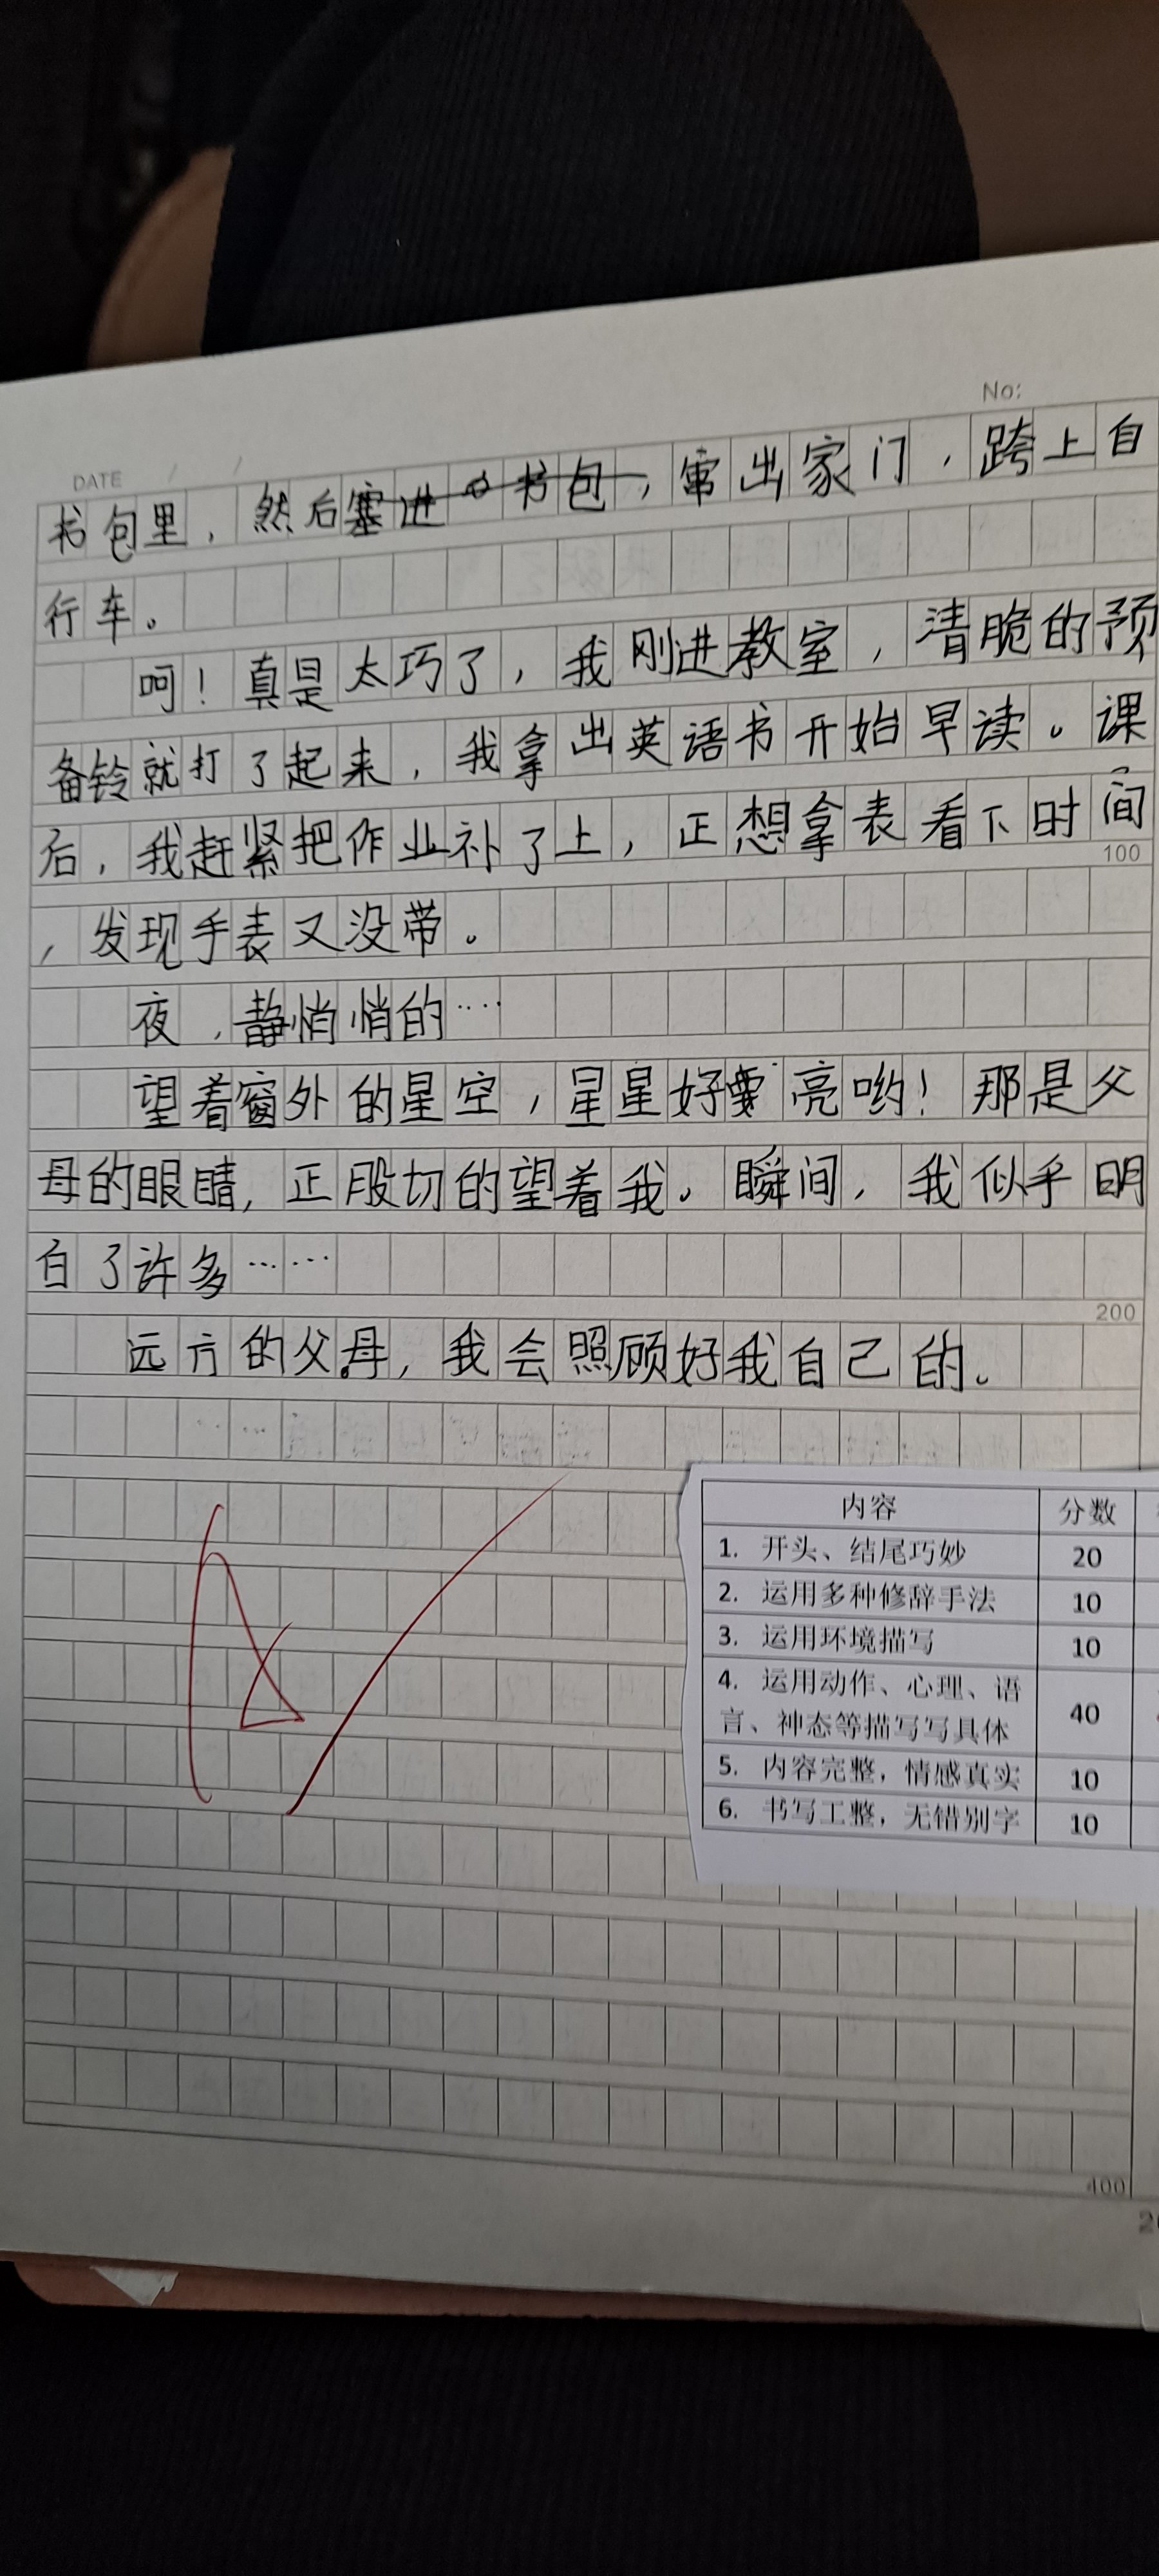 No:
DATE / /
书包里，然后塞进书包，窜出家门，跨上自
行车。
呵！真是太巧了，我刚进教室，清脆的预
备铃就打了起来，我拿出英语书开始早读。课
后，我赶紧把作业补了上，正想拿表看下时间
100
，发现手表又没带。
夜，静悄悄的……
望着窗外的星空，星星好要亮哟！那是父
母的眼睛，正殷切的望着我。瞬间，我似乎明
白了许多……
200
远方的父母，我会照顾好我自己的。
内容 分数
1. 开头、结尾巧妙 20
2. 运用多种修辞手法 10
3. 运用环境描写 10
4. 运用动作、心理、语
言、神态等描写写具体 40
5. 内容完整，情感真实 10
6. 书写工整，无错别字 10
400